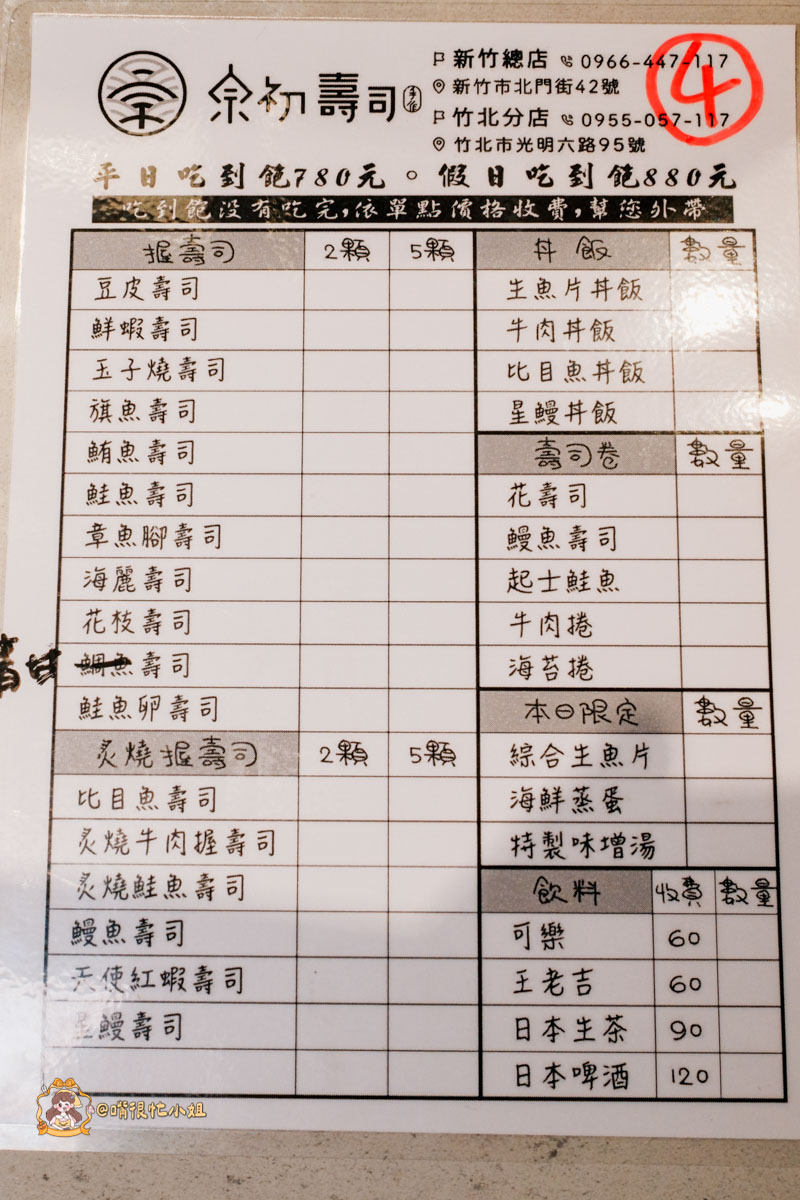 宗初壽司 手作
新竹總店 0966-447-117
新竹市北門街42號
竹北分店 0955-057-117
竹北市光明六路95號
4
平日吃到飽780元。假日吃到飽880元
吃到飽没有吃完,依單點價格收費,幫您外帶
握壽司 2顆 5顆
豆皮壽司
鮮蝦壽司
玉子燒壽司
旗魚壽司
鮪魚壽司
鮭魚壽司
章魚腳壽司
海麗壽司
花枝壽司
青甘 鯛魚壽司
鮭魚卵壽司
炙燒握壽司 2顆 5顆
比目魚壽司
炙燒牛肉握壽司
炙燒鮭魚壽司
鰻魚壽司
天使紅蝦壽司
星鰻壽司
丼飯 數量
生魚片丼飯
牛肉丼飯
比目魚丼飯
星鰻丼飯
壽司卷 數量
花壽司
鰻魚壽司
起士鮭魚
牛肉捲
海苔捲
本日限定 數量
綜合生魚片
海鮮蒸蛋
特製味增湯
飲料 收費 數量
可樂 60
王老吉 60
日本生茶 90
日本啤酒 120
@嘴很忙小姐